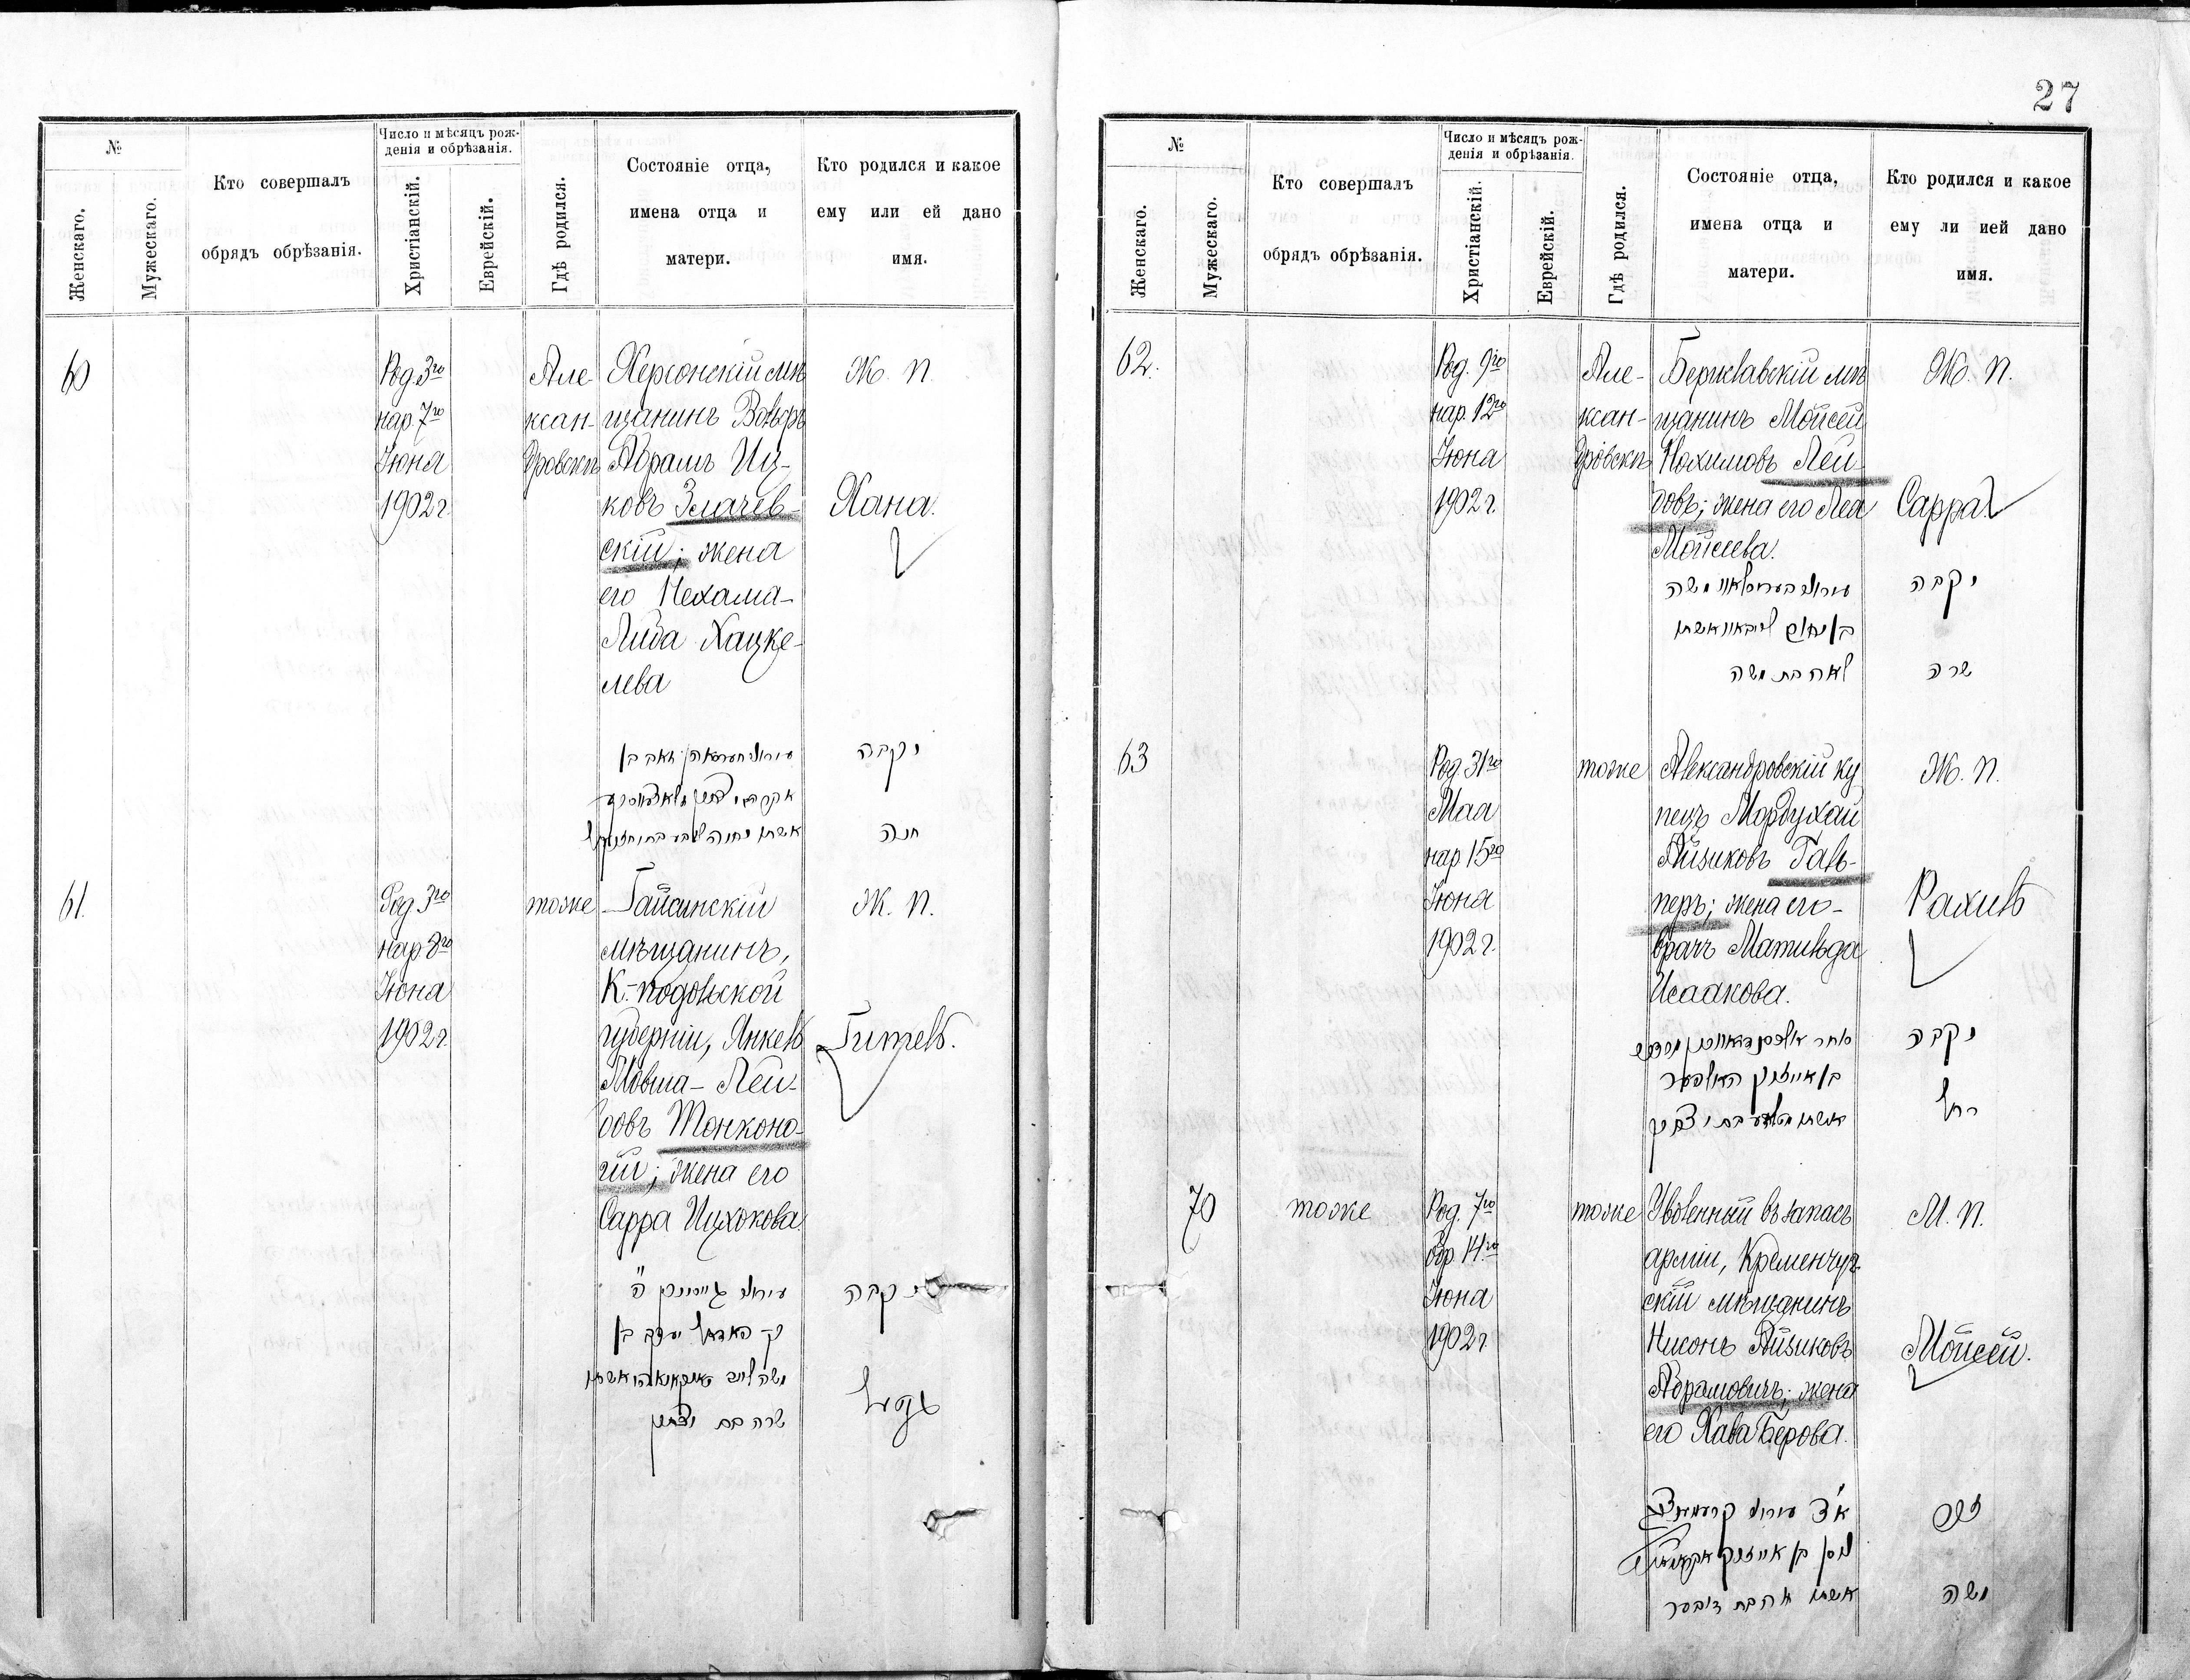 27
№
Женскаго.
Мужескаго.
Кто совершалъ
обрядъ обрѣзанія.
Число и мѣсяцъ рож-
денія и обрѣзанія.
Христіанскій.
Еврейскій.
Гдѣ родился.
Состояніе отца,
имена отца и
матери.
Кто родился и какое
ему или ей дано
имя.
60
Род. 3го
нар. 7го
Іюня
1902 г.
Але
ксан-
дровскѣ
Херсонскій мѣ
щанинъ Вольфъ
Абрамъ Иц-
ковъ Злачев-
скій; жена
его Нехама-
Либа Хацке-
лева
Ж. п.
Хана.
נקבה
חנה
61.
Род. 3го
нар. 8го
Іюня
1902 г.
тоже
Гайсинскій
мѣщанинъ,
К.-Подольской
губерніи, Янкель
Мовша-Лей-
бовъ Тонконо-
гій; жена его
Сарра Ицхокова
Ж. п.
Гитель.
נקבה
שרה בת יצחק
№
Женскаго.
Мужескаго.
Кто совершалъ
обрядъ обрѣзанія.
Число и мѣсяцъ рож-
денія и обрѣзанія.
Христіанскій.
Еврейскій.
Гдѣ родился.
Состояніе отца,
имена отца и
матери.
Кто родился и какое
ему ли ией дано
имя.
62.
Род. 9го
нар. 12го
Іюня
1902 г.
Але-
ксан-
дровскѣ
Бериславскій мѣ
щанинъ Мойсей
Нохимовъ Лей-
бовъ; жена его Леа
Мойсеева.
Ж. п.
Сарра
נקבה
לאה בת משה
שרה
63
Род. 31го
Мая
нар 15го
Іюня
1902 г.
тоже
Александровскій ку
пецъ Мордухай
Айзиковъ Галь-
перъ; жена его-
врачъ Матильда
Исаакова.
Ж. п.
Рахиль
נקבה
בן אייזיק האלפער
רחל
70
тоже
Род. 7го
обр. 14го
Іюня
1902 г.
тоже
Уволенный въ запасъ
арміи, Кременчуг-
скій мѣщанинъ
Нисонъ Айзиковъ
Абрамовичъ; жена
его Хава Берова.
М. п.
Мойсей.
זכר
משה